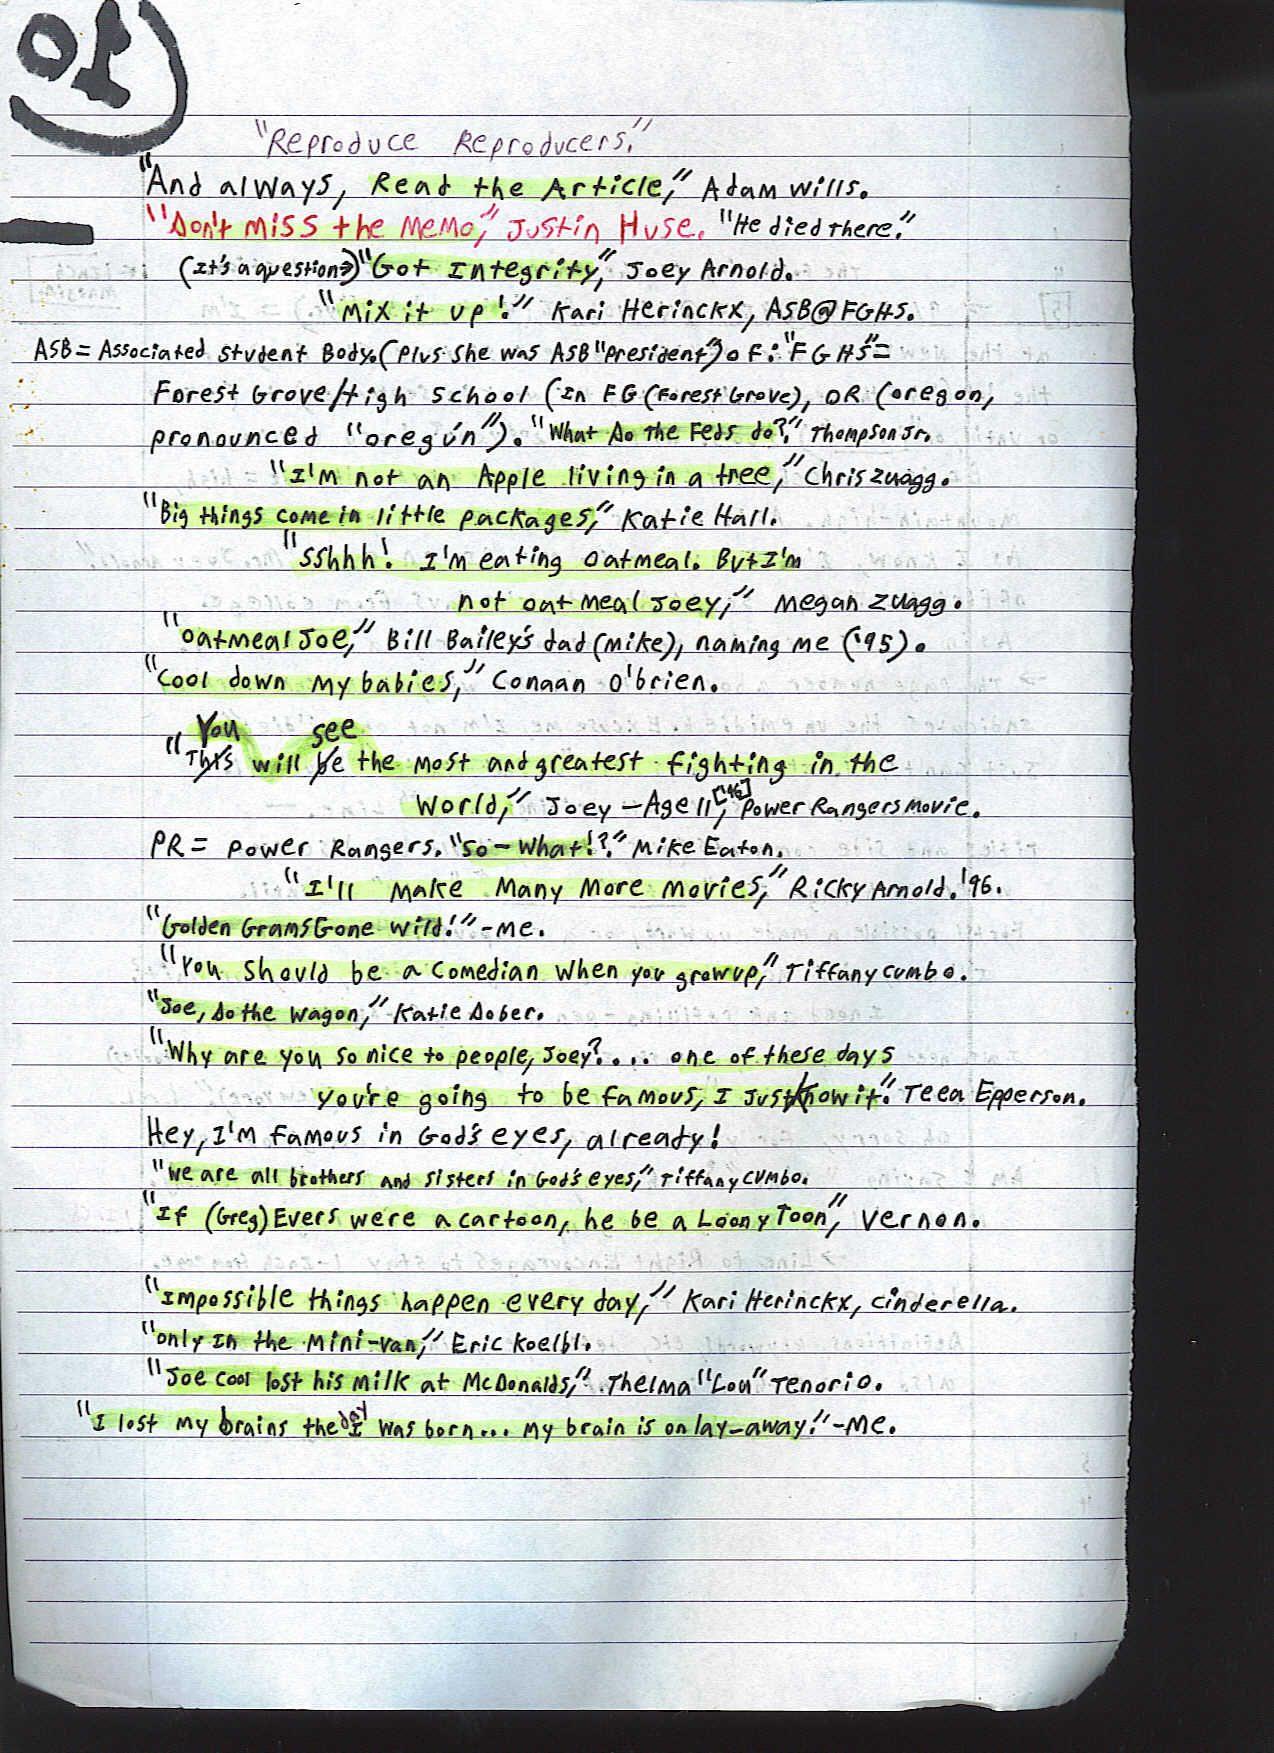 10
"Reproduce Reproducers."
"And always, Read the Article," Adam Wills.
"Don't Miss the Memo," Justin Huse. "He died there."
(It's a question→) "Got Integrity," Joey Arnold.
"Mix it up!" Kari Herinckx, ASB@FGHS.
ASB = Associated Student Body. (Plus she was ASB "President") of: "FGHS" =
Forest Grove High School (In FG (Forest Grove), OR (Oregon,
pronounced "oregún"). "What do the Feds do?" Thompson Jr.
"I'm not an Apple living in a tree," Chris Zuagg.
"Big things come in little packages," Katie Hall.
"Sshhh! I'm eating oatmeal. But I'm
not oatmeal Joey," Megan Zuagg.
"oatmeal Joe," Bill Bailey's dad (Mike), naming me ('95).
"Cool down my babies," Conaan O'brien.
You see
"This will be the most and greatest fighting in the
World," Joey - Age 11, ['96] Power Rangers Movie.
PR = Power Rangers. "So - What!?" Mike Eaton.
"I'll make Many More movies," Ricky Arnold. '96.
"Golden Grams Gone Wild!" - Me.
"You should be a Comedian when you grow up," Tiffany Cumbo.
"Joe, do the wagon," Katie Dober.
"Why are you so nice to people, Joey?.... one of these days
you're going to be famous, I just know it." Teea Epperson.
Hey, I'm famous in God's eyes, already!
"We are all brothers and sisters in God's eyes," Tiffany Cumbo.
"If (Greg) Evers were a cartoon, he be a Loony Toon," Vernon.
"Impossible things happen every day," Kari Herinckx, Cinderella.
"only in the mini-van," Eric Koelbl.
"Joe Cool lost his milk at McDonalds," Thelma "Lou" Tenorio.
"I lost my brains the day I was born... my brain is on lay-away!" - Me.